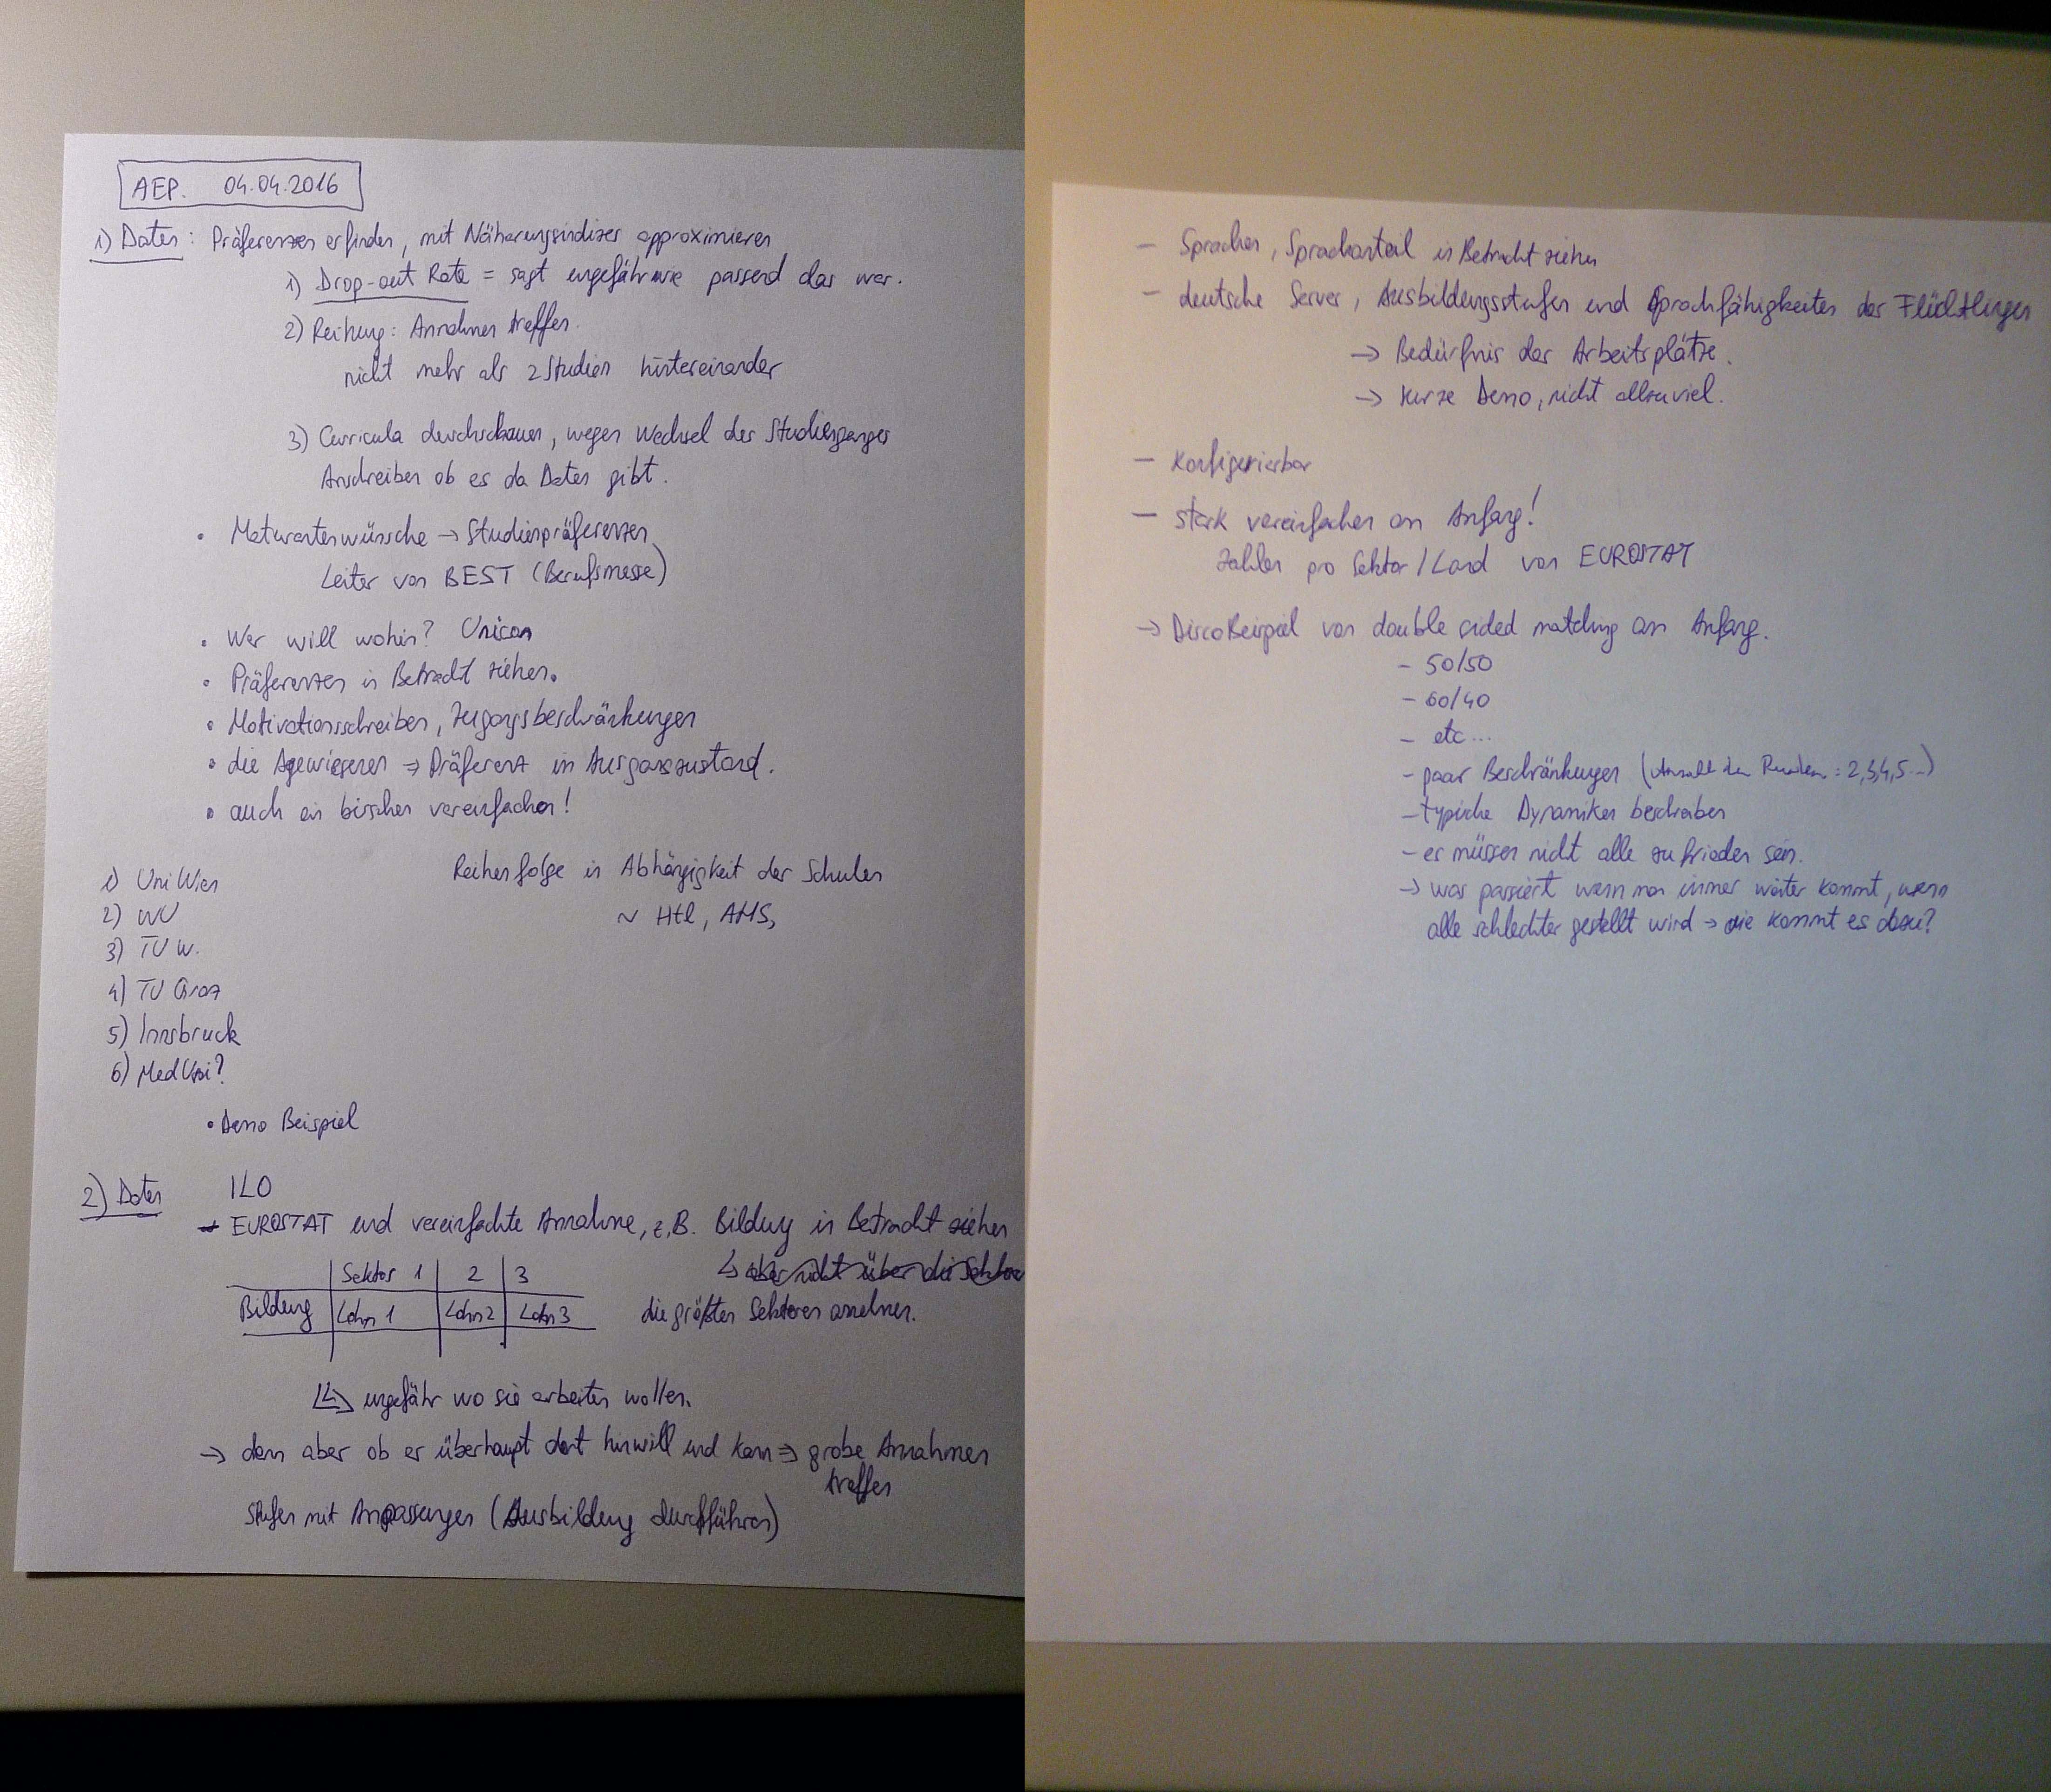 AEP. 04.04.2016
1) Daten: Präferenzen erfinden, mit Näherungsindizes approximieren
1) Drop-out Rate = sagt ungefähr wie passend das war.
2) Reihung: Annahmen treffen.
nicht mehr als 2 Studien hintereinander
3) Curricula durchschauen, wegen Wechsel des Studienganges
Anschreiben ob es da Daten gibt.
• Maturantenwünsche → Studienpräferenzen
Leiter von BEST (Berufsmesse)
• Wer will wohin? Unicon
• Präferenzen in Betracht ziehen.
• Motivationsschreiben, Zugangsbeschränkungen
• die Agewiesenen ⇒ Präferenz im Ausganszustand.
• auch ein bisschen vereinfachen!
Reihenfolge in Abhängigkeit der Schulen
~ Htl, AHS,
1) Uni Wien
2) WU
3) TU W.
4) TU Graz
5) Innsbruck
6) MedUni?
• Demo Beispiel
2) Daten ILO
→ EUROSTAT und vereinfachte Annahme, z.B. Bildung in Betracht ziehen
↳ aber nicht über die Sektoren
Sektor 1 | 2 | 3
Bildung | Lohn 1 | Lohn 2 | Lohn 3
die größten Sektoren annehmen.
↳ ungefähr wo sie arbeiten wollen.
→ dann aber ob er überhaupt dort hinwill und kann ⇒ grobe Annahmen
treffen
Stufen mit Anpassungen (Ausbildung durchführen)
- Sprachen, Sprachanteil in Betracht ziehen
- deutsche Server, Ausbildungsstufen und Sprachfähigkeiten der Flüchtlingen
→ Bedürfnis der Arbeitsplätze.
→ kurze Demo, nicht allzuviel.
- Konfigurierbar
- stark vereinfachen am Anfang!
Zahlen pro Sektor / Land von EUROSTAT
→ Disco Beispiel von double sided matching am Anfang.
- 50/50
- 60/40
- etc...
- paar Beschränkungen (Anzahl der Runden: 2,3,4,5...)
- typische Dynamiken beschreiben
- es müssen nicht alle zufrieden sein.
→ was passiert wenn man immer weiter kommt, wenn
alle schlechter gestellt wird → wie kommt es dazu?